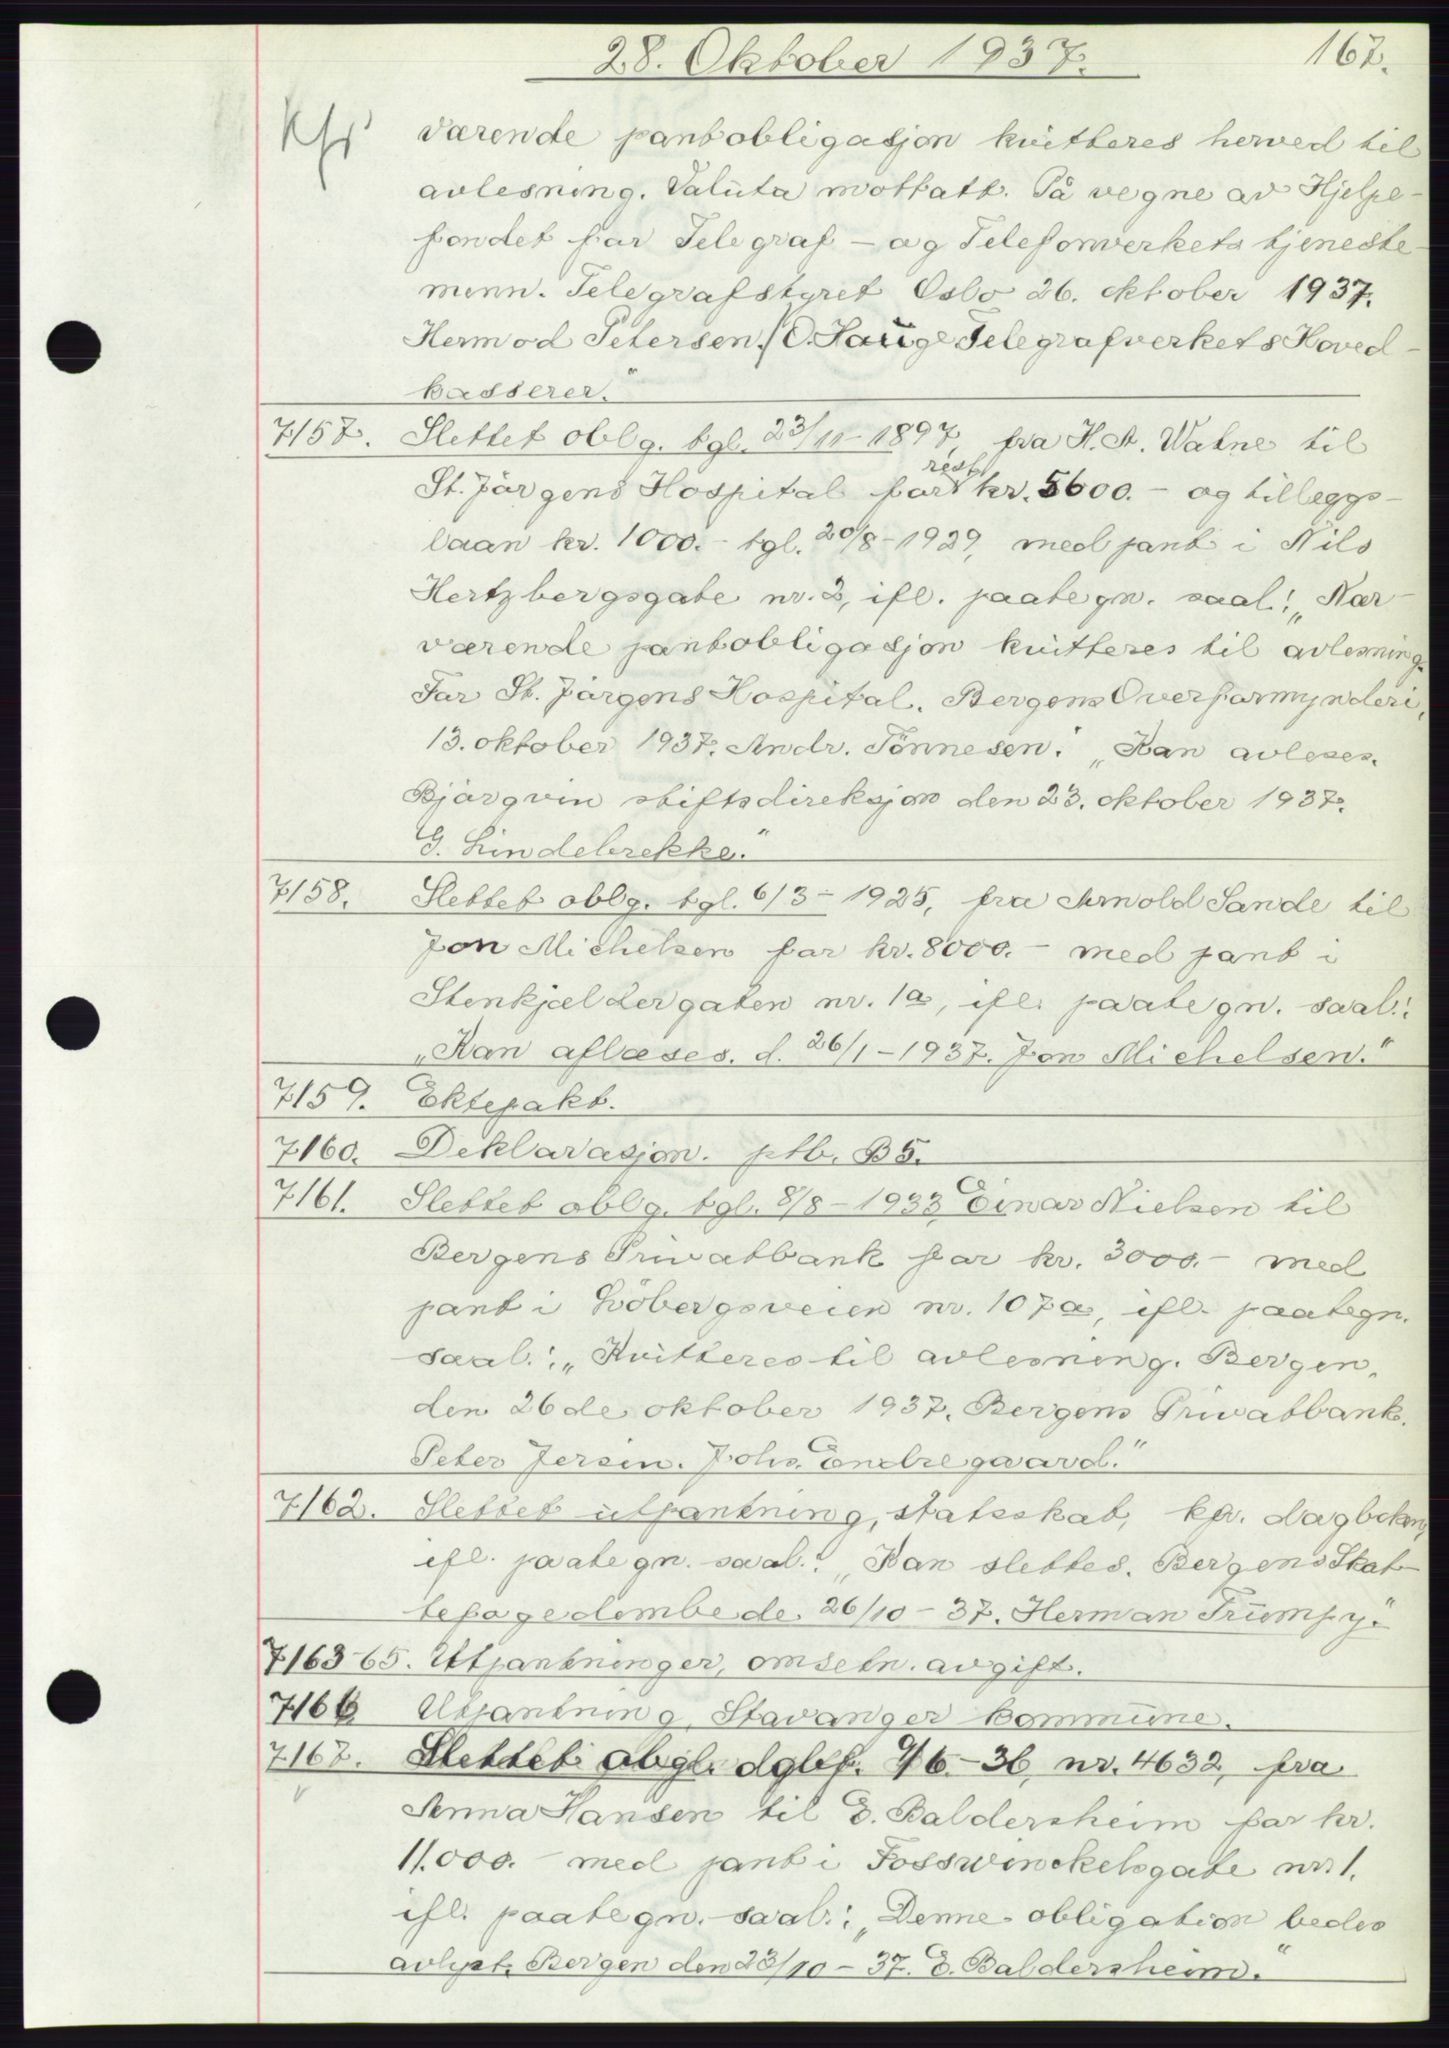 28. Oktober 1937. 167.
Kfr værende pantobligasjon kvitteres herved til
avlesning. Valuta mottatt. På vegne av Hjelpe-
fondet for Telegraf- og Telefonverkets tjeneste-
menn. Telegrafstyret Oslo 26. oktober 1937.
Hermod Petersen./O. Hauge Telegrafverkets Hoved-
kasserer."
7157. Slettet oblg. tgl. 23/11-1897, fra H. A. Watne til
rest
St. Jörgens Hospital for kr. 5600.- og tilleggs-
laan kr. 1000.- tgl. 20/8-1929, med pant i Nils
Hertzbergsgate nr. 2, ifl. paategn. saal.: „Nær-
værende pantobligasjon kvitteres til avlesning.
For St. Jörgens Hospital. Bergens Overformynderi,
13. oktober 1937. Andr. Tönnesen." „Kan avleses.
Björgvin stiftsdireksjon den 23. oktober 1937.
G. Lindebrekke."
7158. Slettet oblg. tgl. 6/3-1925, fra Arnold Sande til
Jon Michelsen for kr. 8000.- med pant i
Stenkjeldergaten nr. 1a, ifl. paategn. saal.:
„Kan aflæses. d. 26/1-1937. Jon Michelsen."
7159. Ektepakt.
7160. Deklarasjon. ptb. B5.
7161. Slettet oblg. tgl. 8/8-1933, Einar Nielsen til
Bergens Privatbank for kr. 3000.- med
pant i Löbergsveien nr. 107a, ifl. paategn.
saal.: „Kvitteres til avlesning. Bergen,
den 26de oktober 1937. Bergens Privatbank.
Peter Jersin. Johs. Endregaard."
7162. Slettet utpantning, statsskat, kfr. dagboken,
ifl. paategn. saal.: „Kan slettes. Bergens Skat-
tefogedembede. 26/10-37. Herman Trümpy."
7163-65. Utpantninger, omsetn. avgift.
7166 Utpantning, Stavanger kommune.
7167. Slettet obgl. dgbf. 9/6-36, nr. 4632, fra
Anna Hansen til E. Baldersheim for kr.
11.000.- med pant i Fosswinckelsgate nr. 1.
ifl. paategn. saal.: „Denne obligation bedes
avlyst. Bergen den 23/10-37. E. Baldersheim."